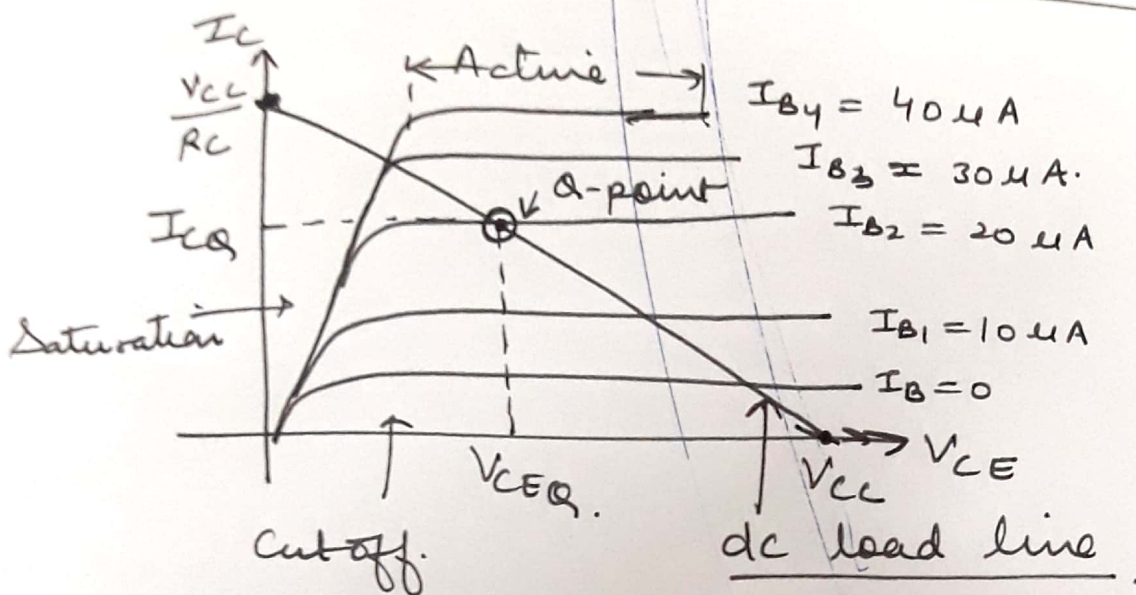 IC
VCC
RC
Active
IB4 = 40 μA
IB3 = 30 μA.
Q-point
ICQ
IB2 = 20 μA
Saturation
IB1 = 10 μA
IB = 0
VCEQ.
VCC
VCE
Cut off.
dc load line.